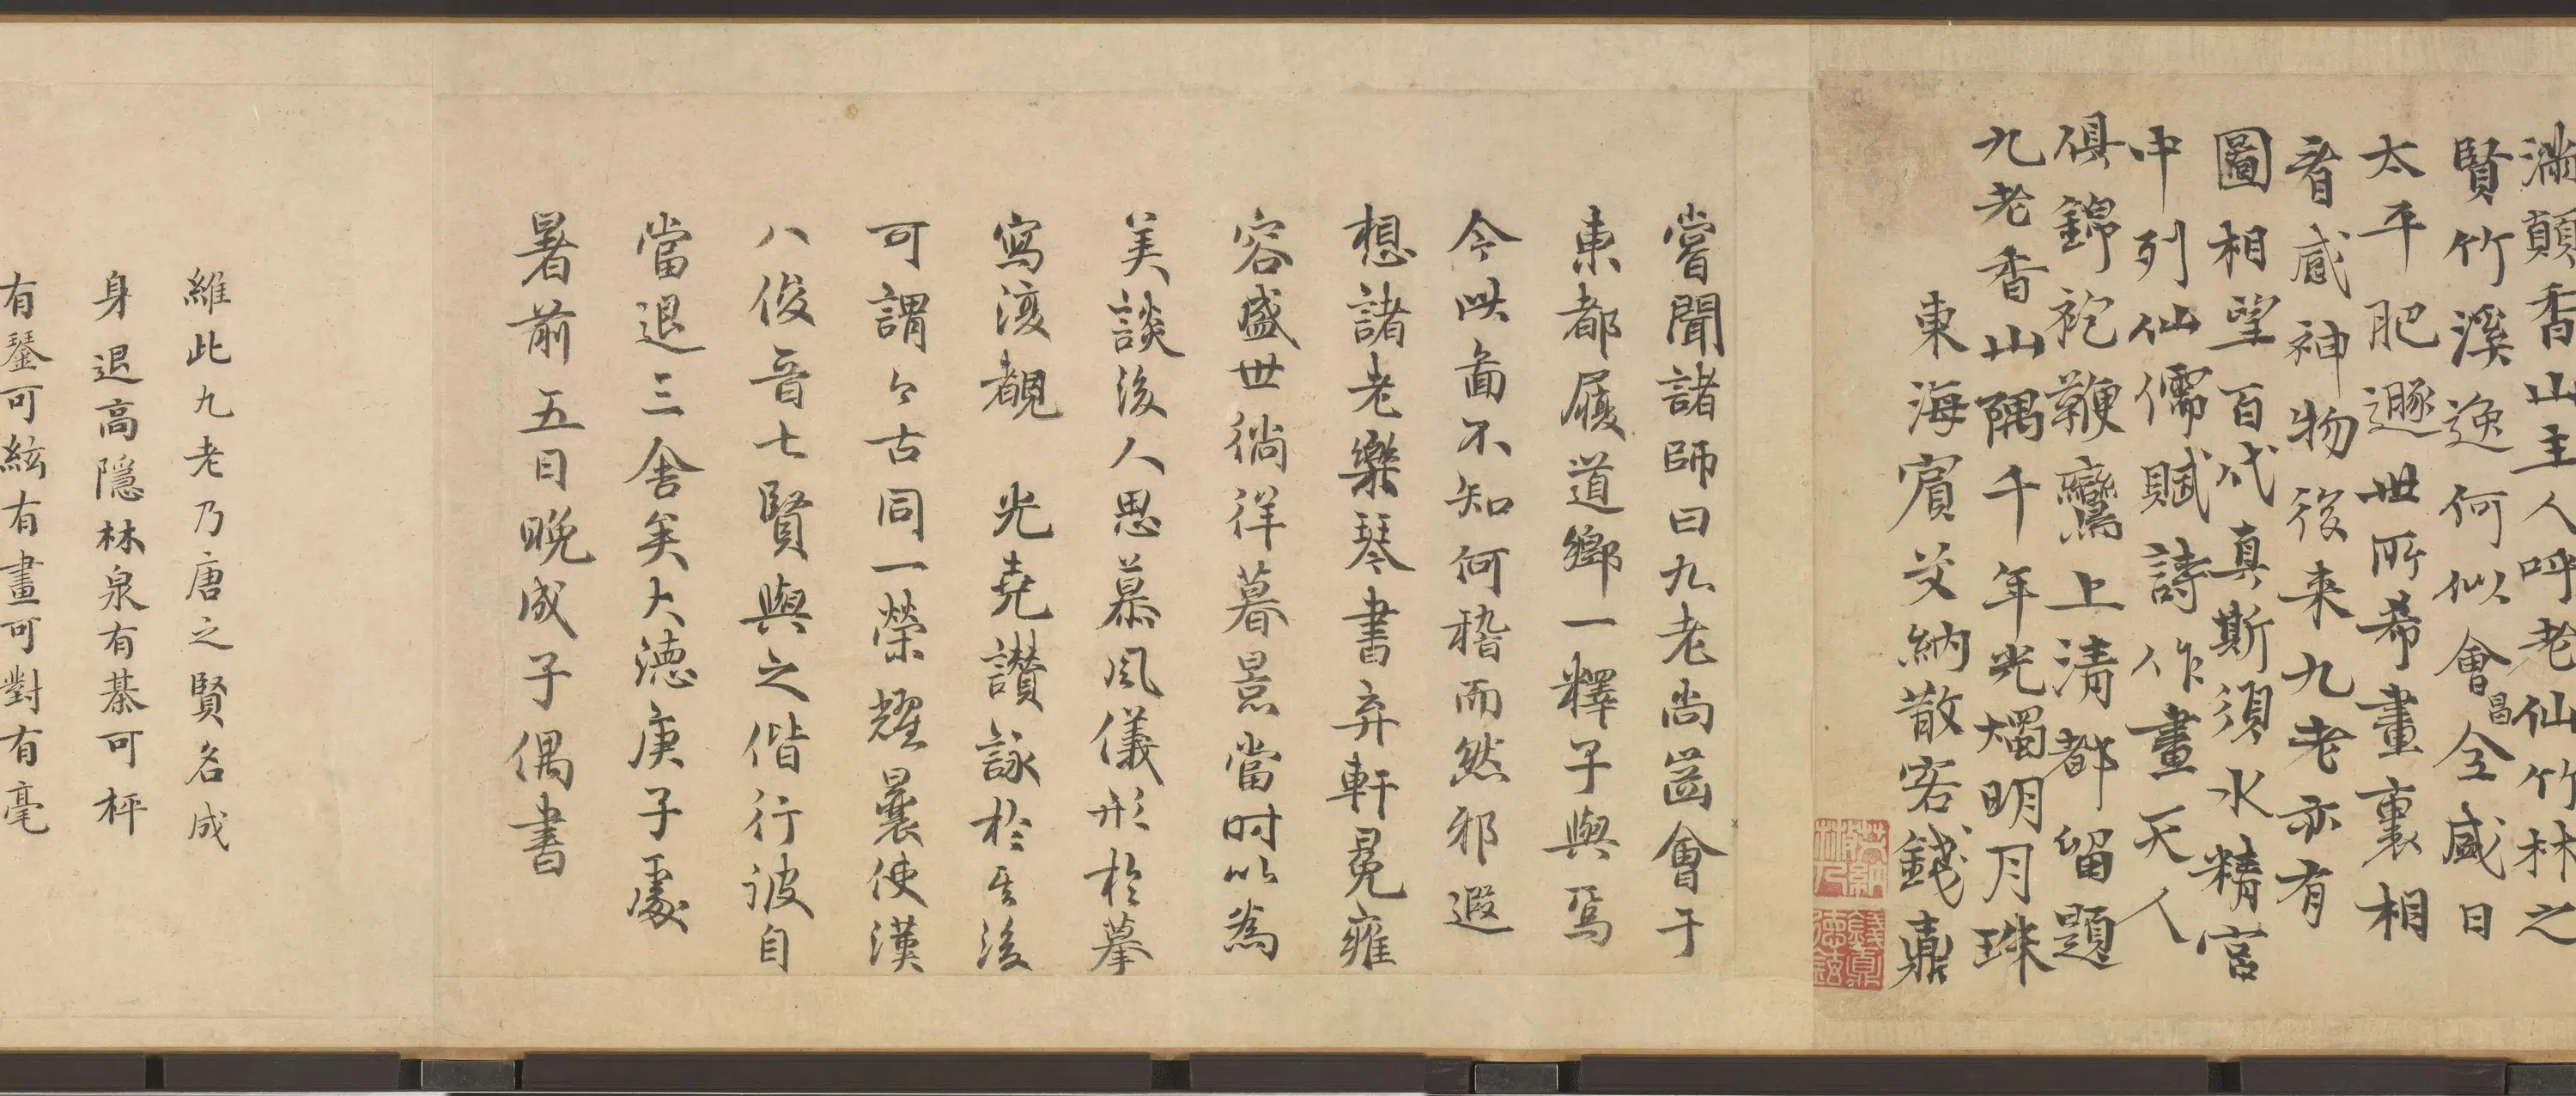 滿顛香山主人呼老仙竹林之
賢竹溪逸何似會昌全盛日
太平肥遯世所希畫裏相
看感神物後来九老亦有
圖相望百代真斯須水精宮
中列仙儒賦詩作畫天人
俱錦袍鞭鸞上清都留題
九老香山隅千年光燭明月珠
東海賓交納散客錢鼐
嘗聞諸師曰九老尚齒會于
東都履道鄉一釋子與焉
今此啚不知何稽而然邪遐
想諸老樂琴書弃軒冕雍
容盛世徜徉暮景當时以為
美談後人思慕風儀形於摹
寫復覩 光堯讃詠於其後
可謂亙古同一榮耀曩使漢
八俊晉七賢與之偕行彼自
當退三舍矣大德庚子處
暑前五日晚成子偶書
維此九老乃唐之賢名成
身退高隱林泉有棊可枰
有琴可絃有畫可對有毫